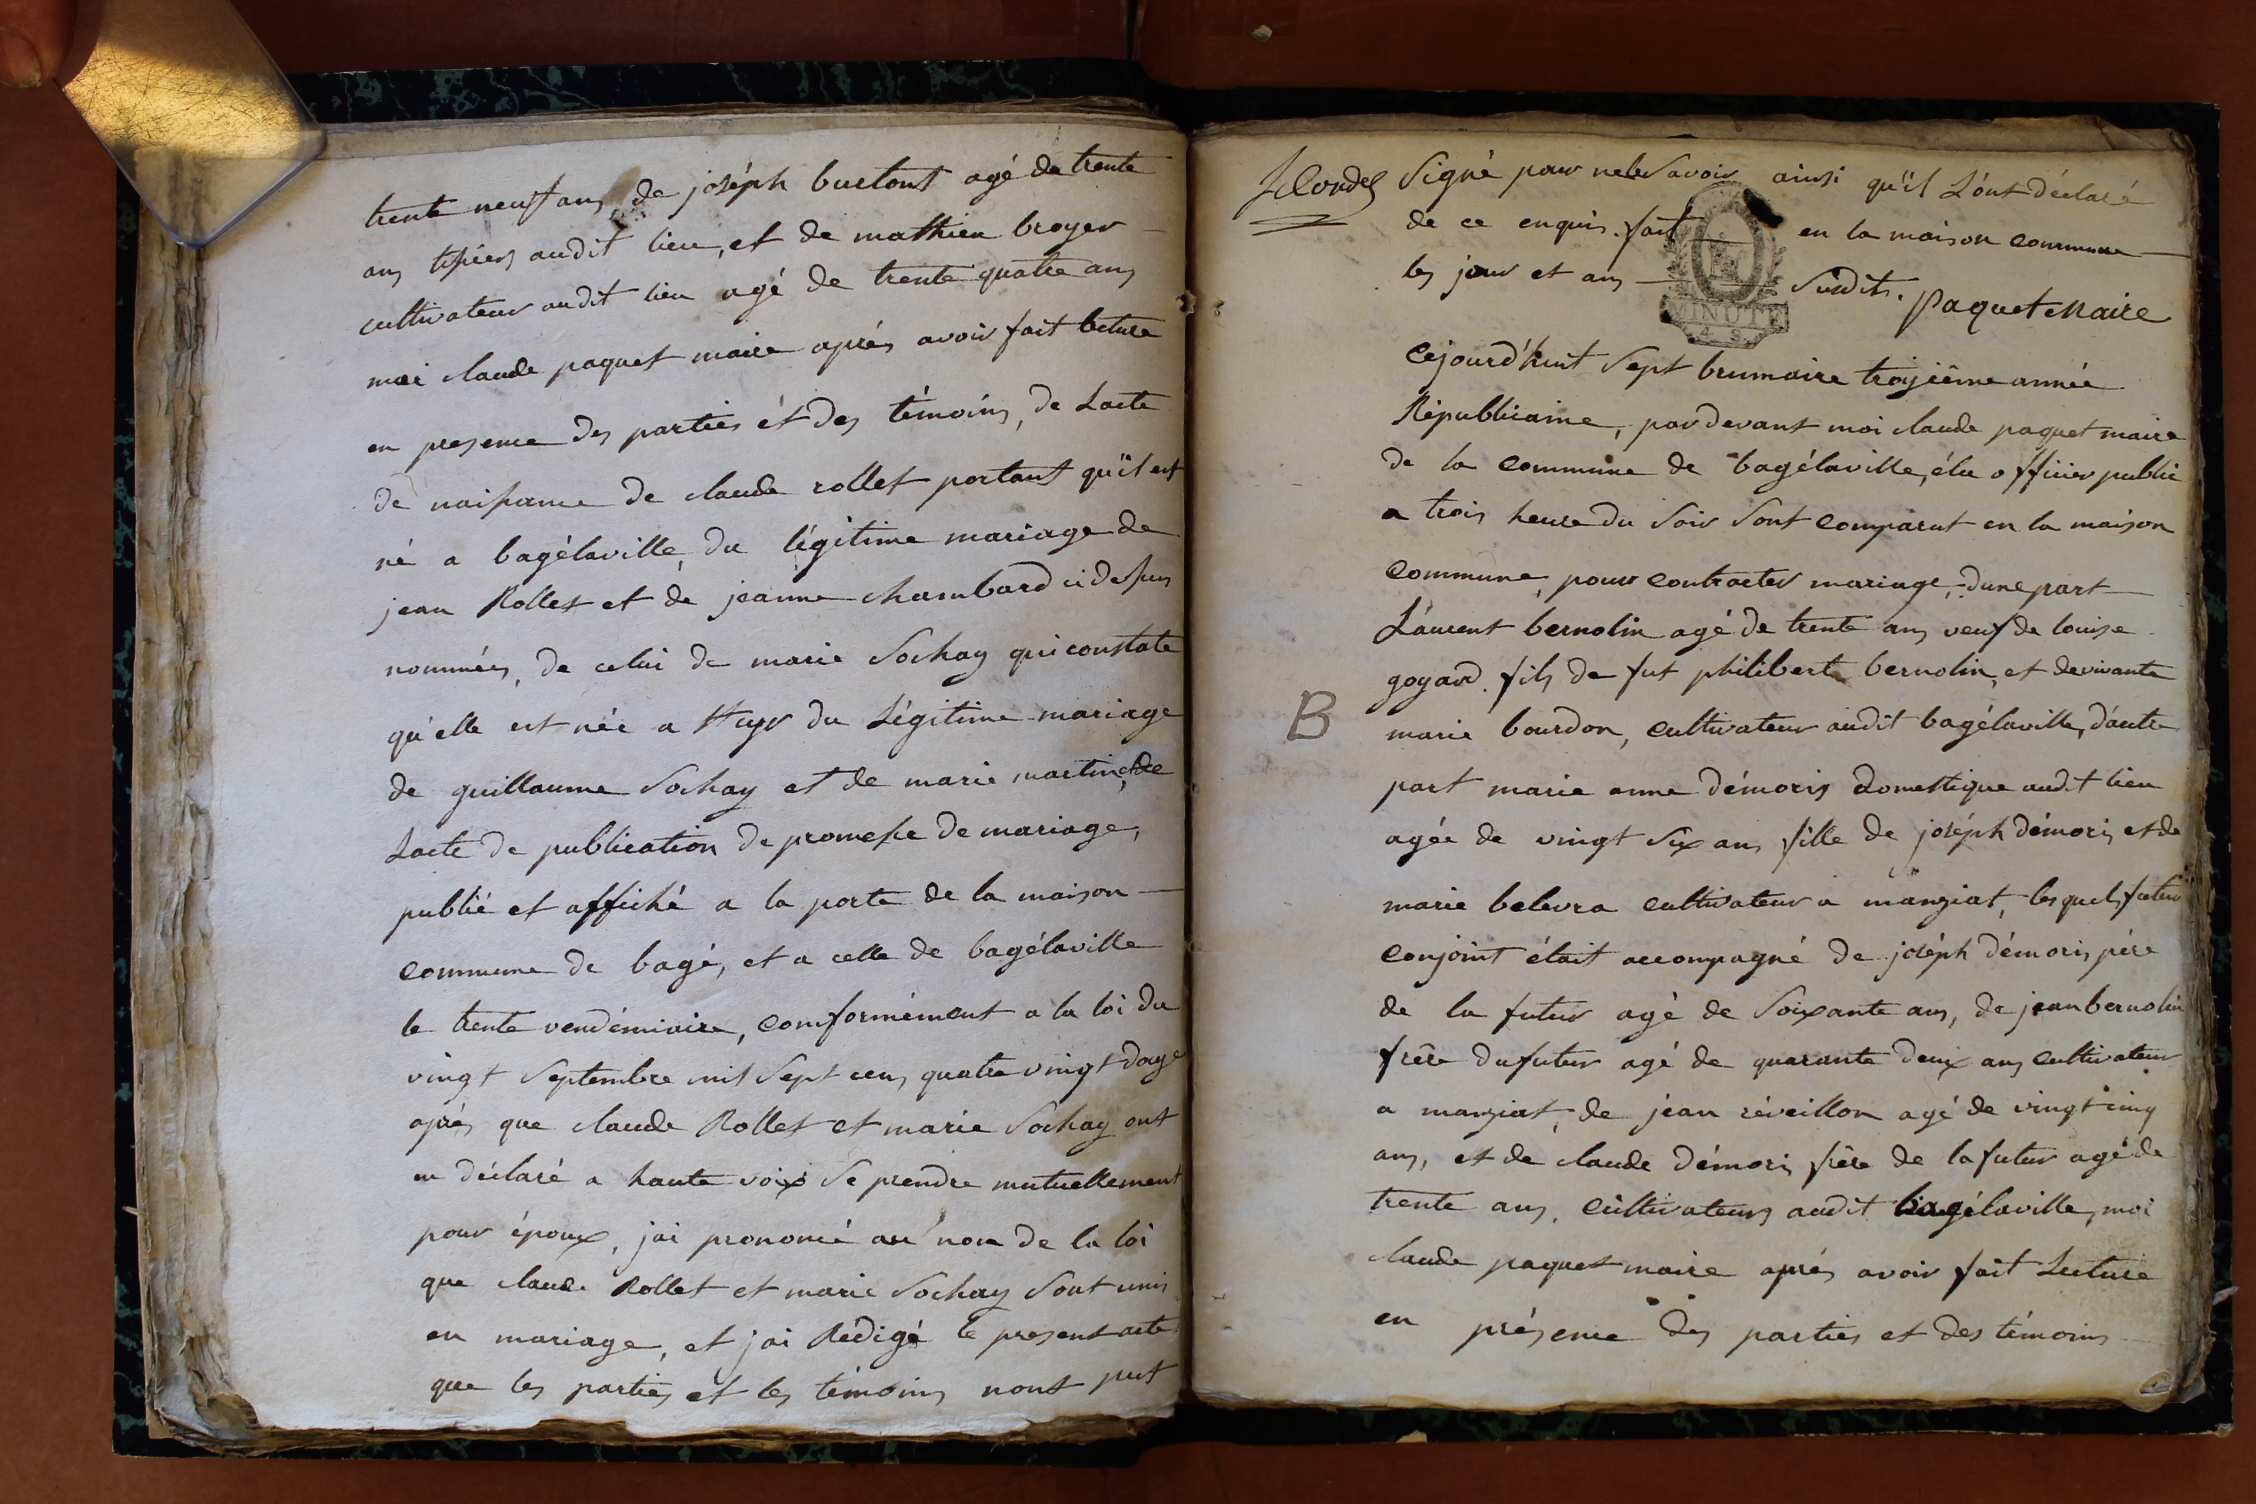 trente neuf ans, de joséph buclont agé de trente
ans tissiers audit lieu, et de mathieu broyer
cultivateur audit lieu agé de trente quatre ans
moi claude paquet maire aprés avoir fait lecture
en presence des parties ét des témoins, de Lacte
de naissance de claude rollet portant qu'il est
né a bagélaville, du légitime mariage de
jean Rollet et de jeanne chambard ci dessus
nommées, de celui de marie Sochay qui constate
qu'elle est née a du Légitime mariage
de guillaume Sochay et de marie martin, et de
Lacte de publication de promesse de mariage,
publié et affiché a la porte de la maison
commune de bagé, et a celle de bagélaville
le trente vendémiaire, conformément a la loi du
vingt Septembre mil Sept cens quatre vingt doze
aprés que claude Rollet et marie Sochay ont
eu déclaré a haute voix Se prendre mutuellement
pour époux, jai prononcé au nom de la loi
que claude Rollet et marie Sochay Sont unis
en mariage, et jai Rédigé le present acte
que les parties et les témoins nont put
Signé pour ne le Savoir ainsi qu'il L'ont déclaré
de ce enquis. fait en la maison commune
les jour et ans Susdits. Paquet Maire
MINUTE
Cejourd'huit Sept brumaire troisiéme année
Républicaine, par devant moi claude paquet maire
de la commune de bagélaville, élu officier public
a trois heure du Soir Sont comparut en la maison
commune, pour contracter mariage, dune part
Laurent bernolin agé de trente ans veuf de louise
goyard. fils de fut philiberte bernolin, et de vivante
B
marie bourdon, cultivateur audit bagélaville, d'autre
part marie anne démoris domestique audit lieu
agée de vingt Six ans fille de joséph démoris et de
marie belevra cultivateur a manziat, lesquels futur
conjoint était accompagné de joséph démoris, pére
de la futur agé de Soixante ans, de jean bernolin
frére du futur agé de quarante deux ans cultivateur
a manziat, de jean réveillon agé de vingt cinq
ans, et de claude démoris frére de la futur agé de
trente ans, cultivateurs audit bagélaville, moi
claude paquet maire aprés avoir fait Lecture
en présence des parties et des témoins